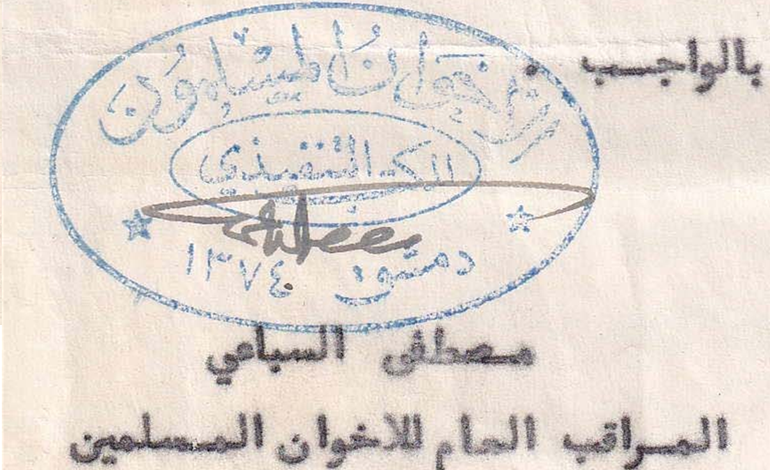 بالواجب .
الاخوان المسلمون
المكتب التنفيذي
دمشق ١٣٧٤
مصطفى السباعي
المراقب العام للاخوان المسلمين